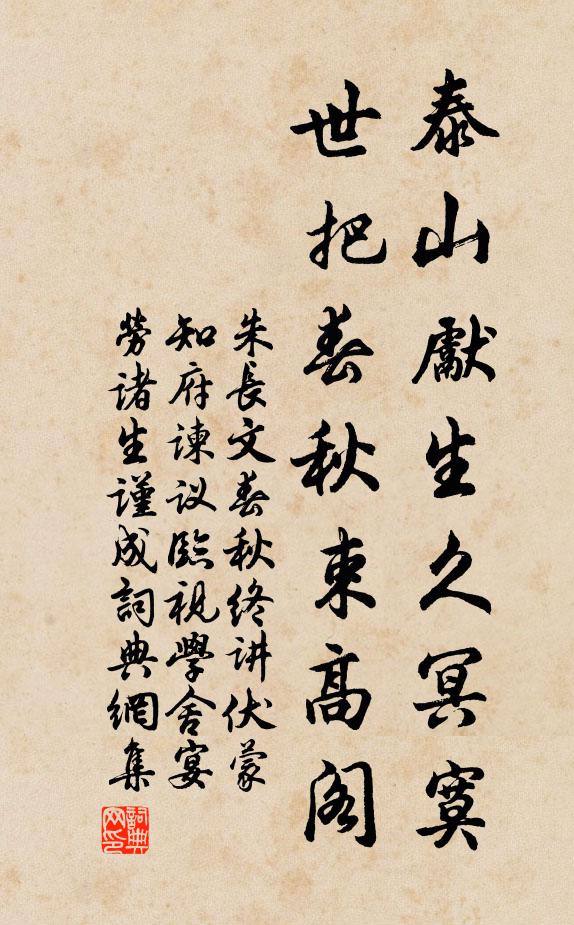 泰山獻生久冥寞
世把春秋束高阁
朱長文春秋终讲伏蒙
知府谏议臨視學舍宴
劳诸生谨成詞典網集
詞典网印